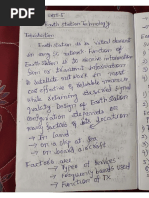 Unit-5
Earth station Technology
Introduction
Earth station is a vital element
in any
Earth station is to receive information
from or transmit information
to Satellite network in most
cost effective & reliable manner
while retaining desired signal
quality. Design of Earth station
configuration depends on
many factors & its location
→ in land
→ on a ship at sea
→ on board aircraft
Factors are
→ Types of services
→ Frequency bands used
→ Function of TX